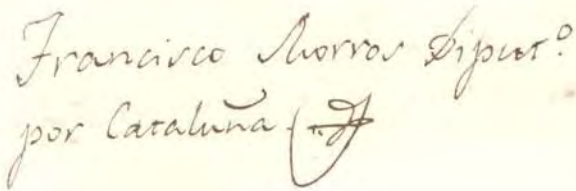 Francisco Morros Diput.º
por Cataluña